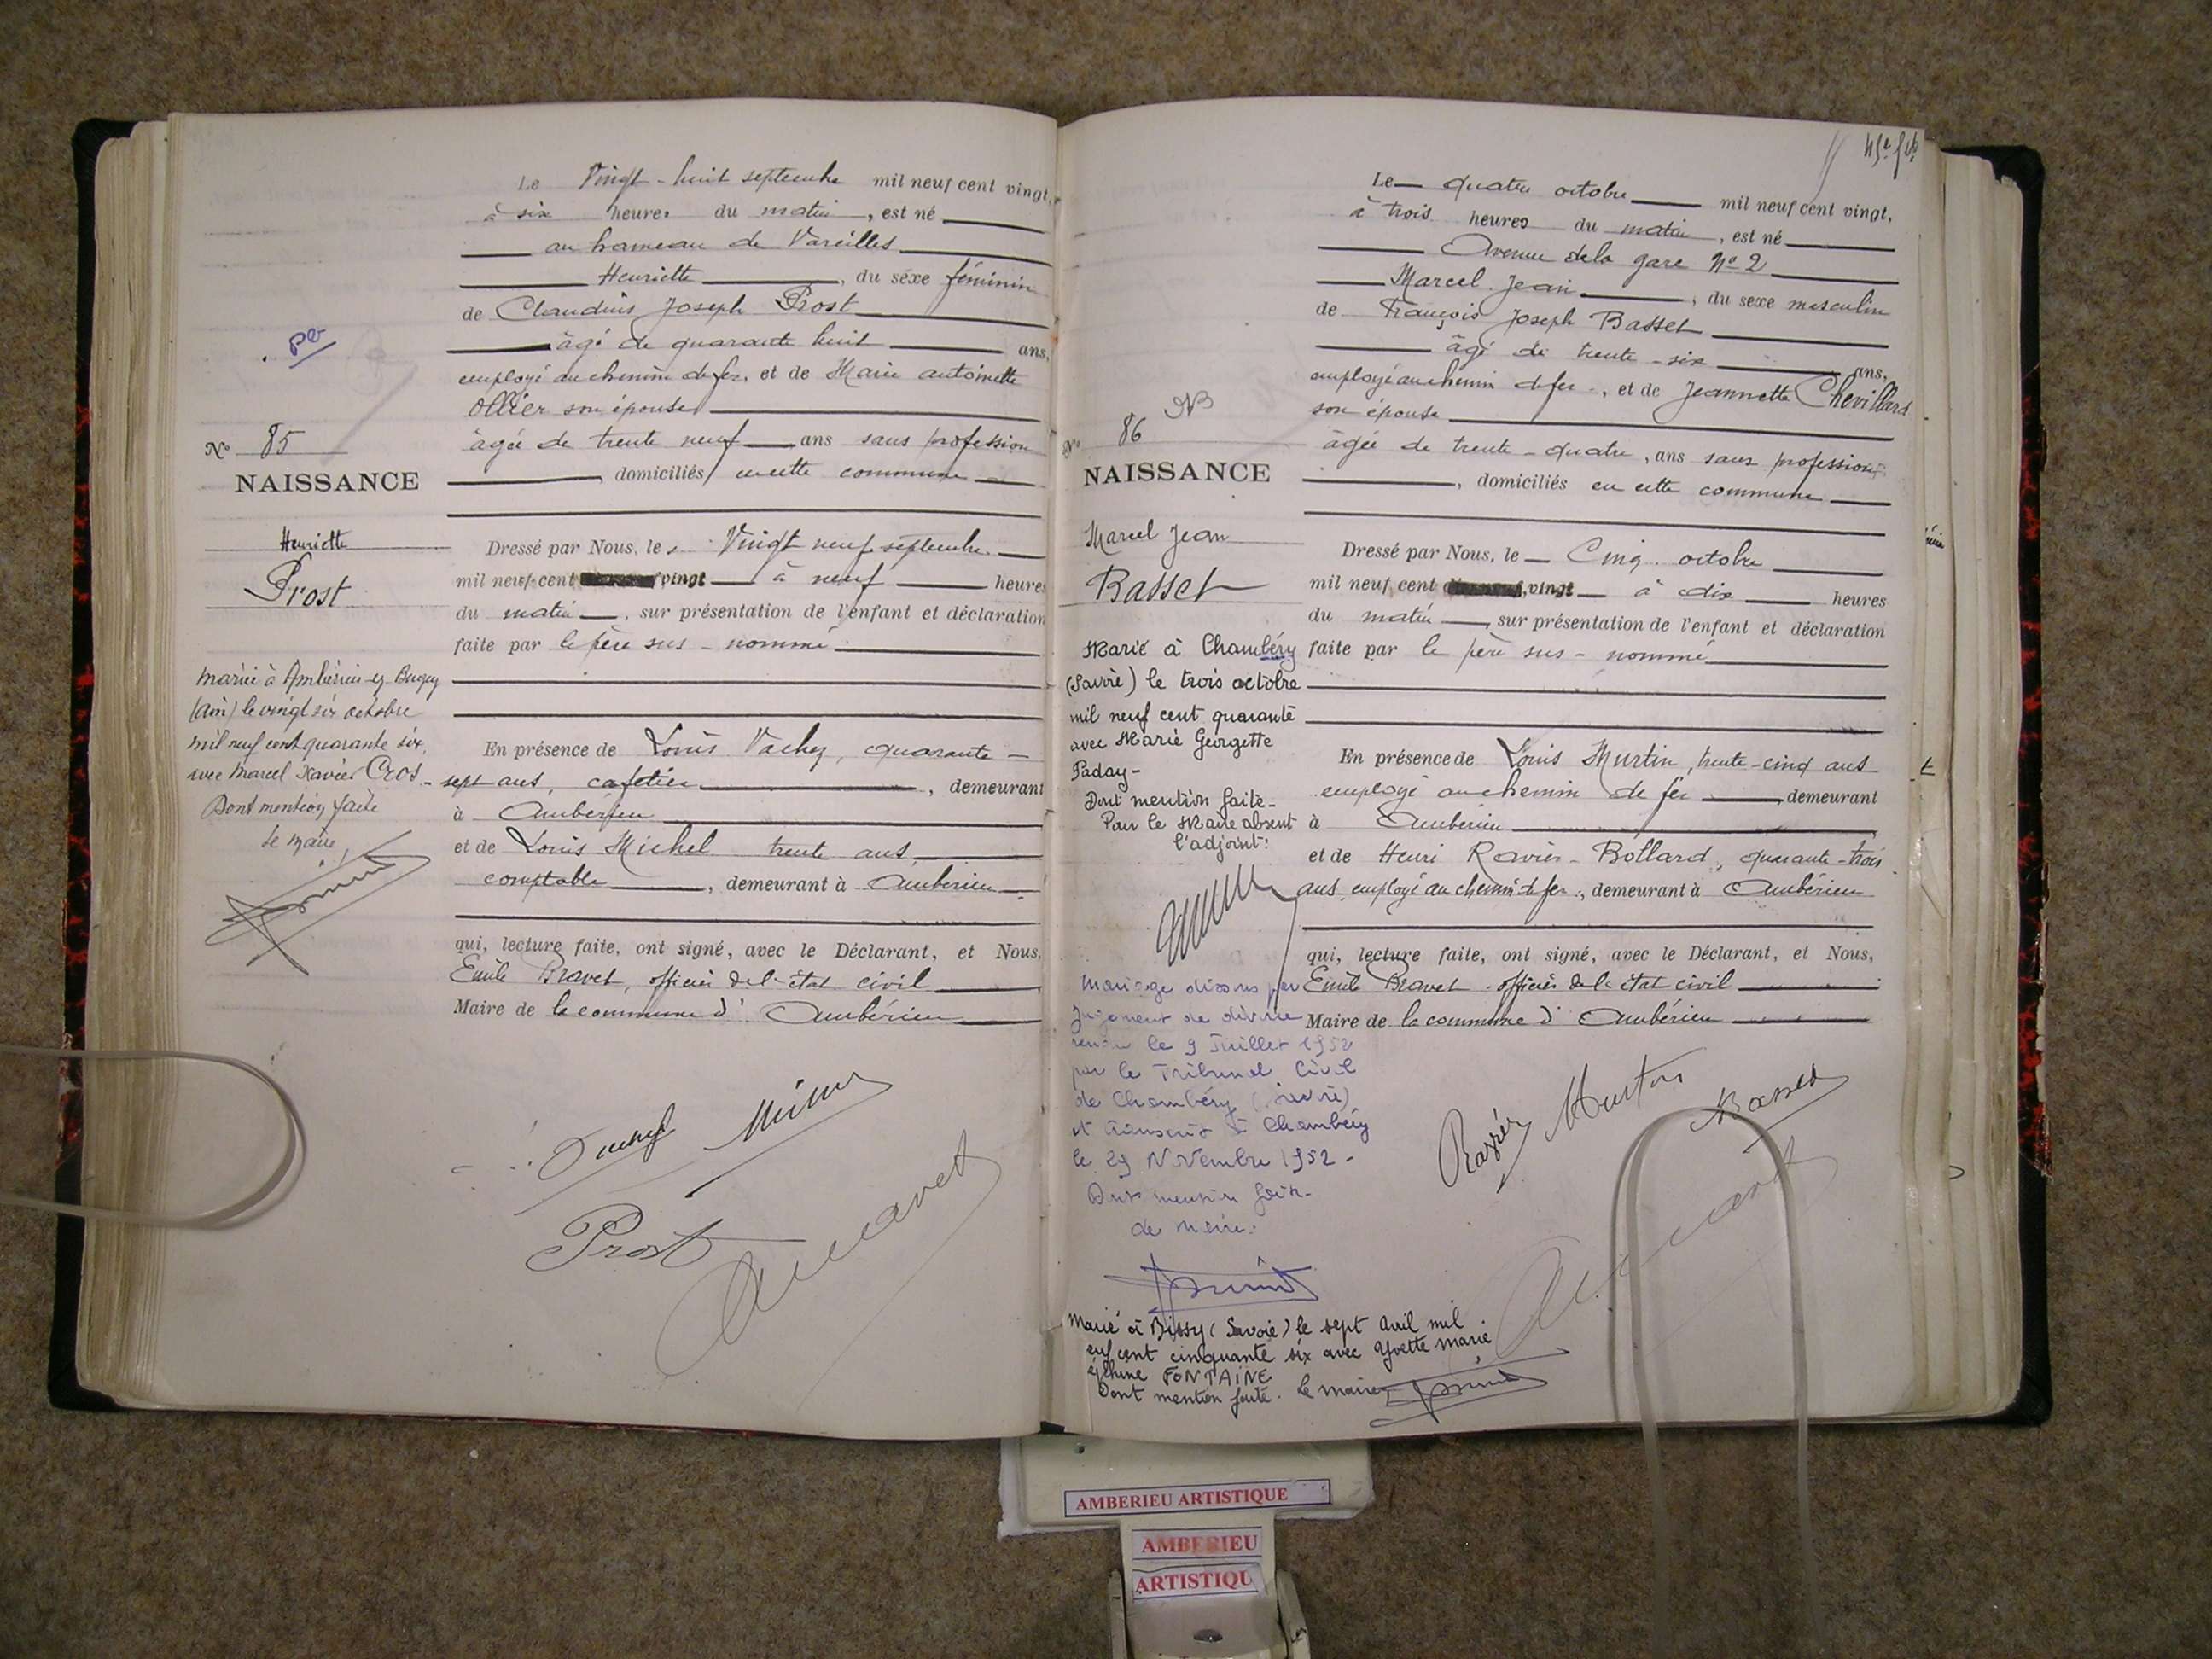 Le Vingt-huit septembre mil neuf cent vingt,
à six heures du matin, est né
au hameau de Vareilles
Henriette, du sexe féminin
de Claudius Joseph Prost
âgé de quarante huit ans,
employé au chemin de fer, et de Marie antoinette
Ollier son épouse
N° 85
âgée de trente neuf ans sans profession
NAISSANCE
domiciliés en cette commune
Henriette
Prost
Dressé par Nous, le Vingt neuf septembre
mil neuf cent vingt à neuf heures
du matin, sur présentation de l'enfant et déclaration
faite par le père sus-nommé
mariée à Ambérieu-en-Bugey
(Ain) le vingt six octobre
mil neuf cent quarante six,
avec Marcel Xavier Cros-
Dont mention faite
Le maire,
En présence de Louis Vachez, quarante-
sept ans, cafetier, demeurant
à Ambérieu
et de Louis Michel trente ans,
comptable, demeurant à Ambérieu
qui, lecture faite, ont signé, avec le Déclarant, et Nous,
Emile Bravet, officier de l'état civil
Maire de la commune d'Ambérieu
Prost
45e
Le quatre octobre mil neuf cent vingt,
à trois heures du matin, est né
Avenue de la gare N° 2
Marcel Jean, du sexe masculin
de François Joseph Basset
âgé de trente-six ans,
employé au chemin de fer, et de Jeannette Chevillard
son épouse
N° 86
âgée de trente-quatre, ans sans profession
NAISSANCE
domiciliés en cette commune
Marcel Jean
Basset
Dressé par Nous, le Cinq octobre
mil neuf cent vingt à dix heures
du matin, sur présentation de l'enfant et déclaration
faite par le père sus-nommé
Marié à Chambéry
(Savoie) le trois octobre
mil neuf cent quarante
avec Marie Georgette
Paday-
Dont mention faite-
Pour le Maire absent
l'adjoint:
En présence de Louis Murtin, trente-cinq ans
employé au chemin de fer, demeurant
à Ambérieu
et de Henri Ravier-Bollard, quarante-trois
ans, employé au chemin de fer, demeurant à Ambérieu
qui, lecture faite, ont signé, avec le Déclarant, et Nous,
Emile Bravet officier de l'état civil
Maire de la commune d'Ambérieu
Mariage dissous par
Jugement de divorce
rendu le 9 Juillet 1952
par le Tribunal Civil
de Chambéry (Savoie)
et transcrit à Chambéry
le 29 Novembre 1952-
Dont mention faite-
Le Maire:
Ravier
Murtin
Basset
Marié à Bissy (Savoie) le sept Avril mil
neuf cent cinquante six avec Yvette Marie
FONTAINE
Dont mention faite. Le maire
AMBERIEU ARTISTIQUE
AMBERIEU
ARTISTIQU